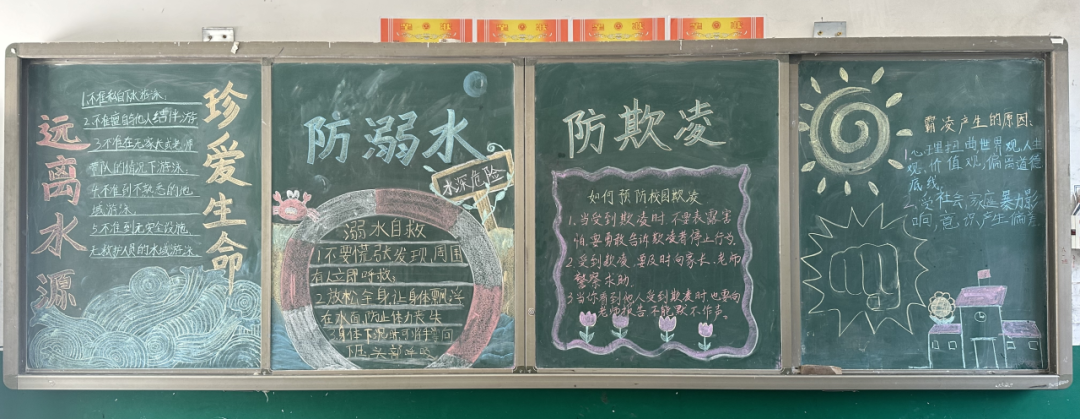 珍爱生命
远离水源
1.不准私自下水游泳
2.不准擅自与他人结伴游
3.不准在无家长或老师
带队的情况下游泳
4.不准到不熟悉的水
域游泳
5.不准到无安全设施
无救护人员的水域游泳
防溺水
水深危险
溺水自救
1.不要慌张发现周围
有人立即呼救
2.放松全身让身体飘浮
在水面
防欺凌
如何预防校园欺凌
1.当受到欺凌时不要表露害
怕,要勇敢告诉欺凌者停止行为
2.受到欺凌要及时向家长、老师
警察求助.
3.当你看到他人受到欺凌时也要向
老师报告不能默不作声。
霸凌产生的原因、
1.心理扭曲世界观,人生
观,价值观,偏离道德
底线
2.受社会家庭暴力影
响,意识产生偏差